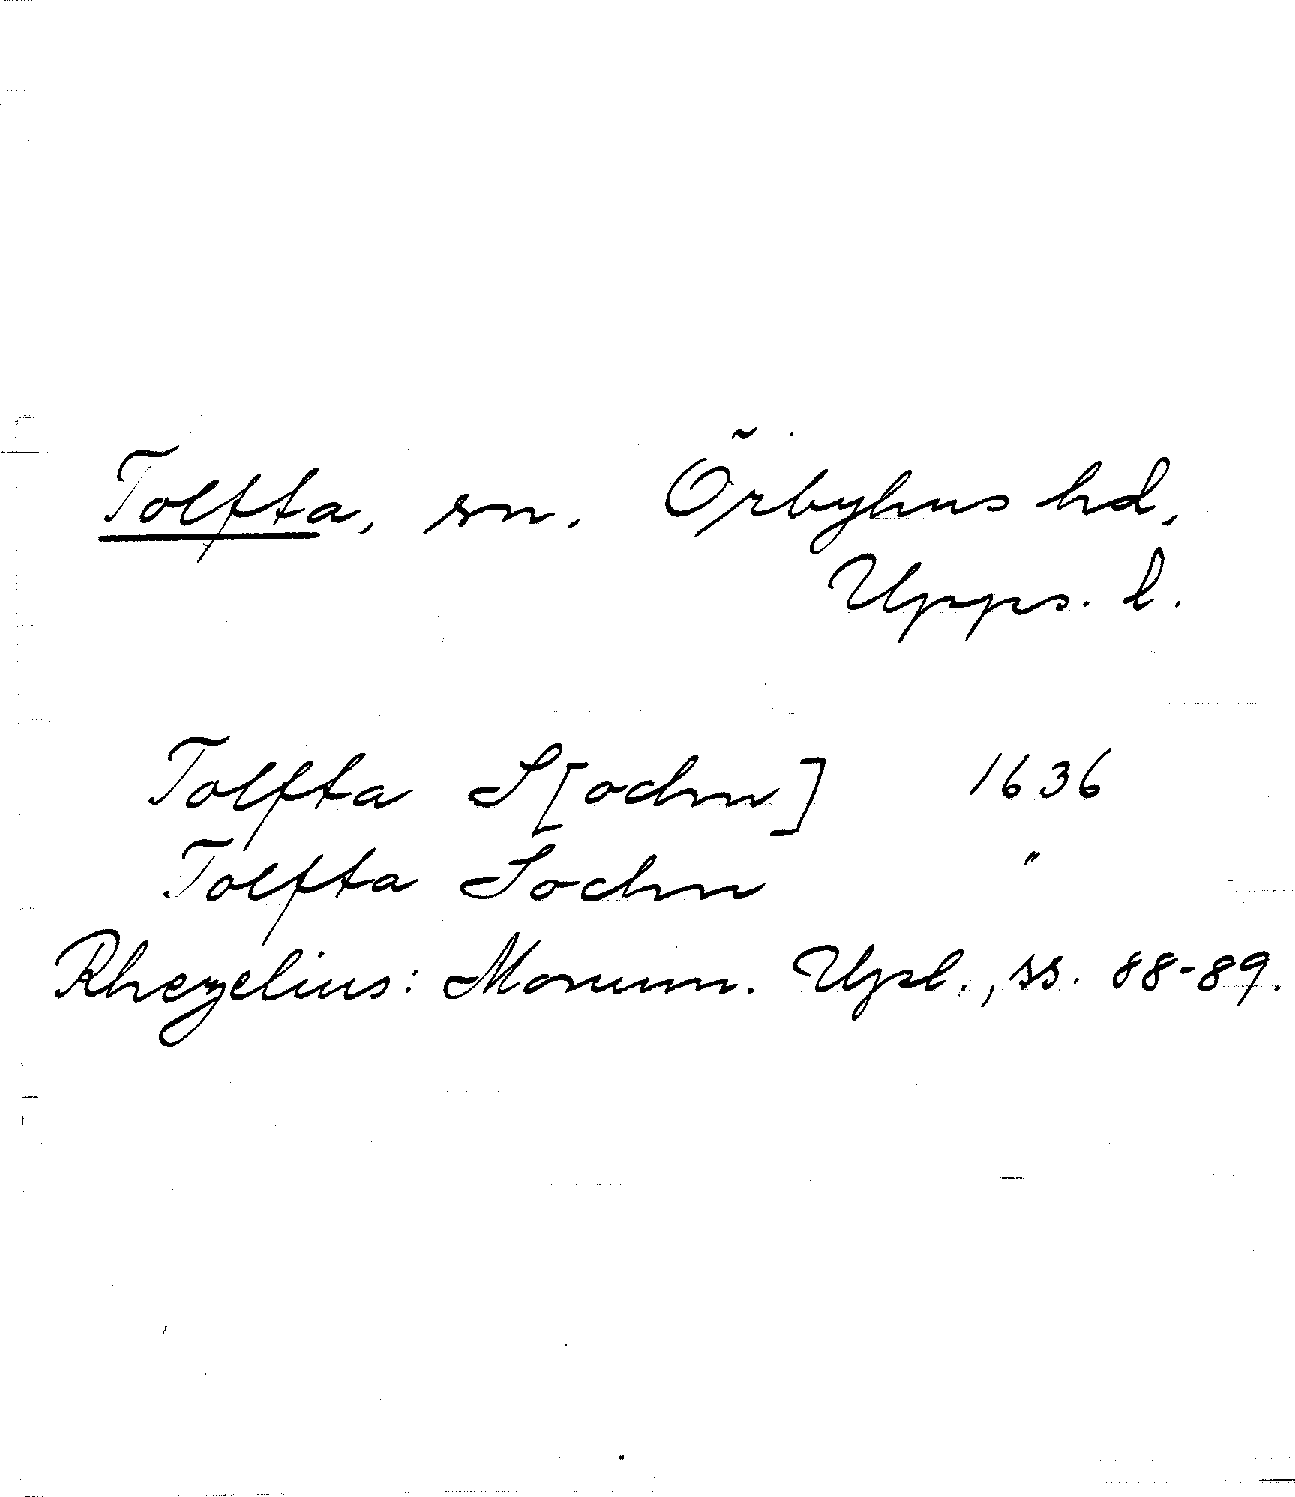 Tolfta, sn. Örbyhus hd,
Upps. l.
Tolfta S[ochn] 1636
Tolfta Sochn "
Rhezelius: Monum. Upl., ss. 88-89.